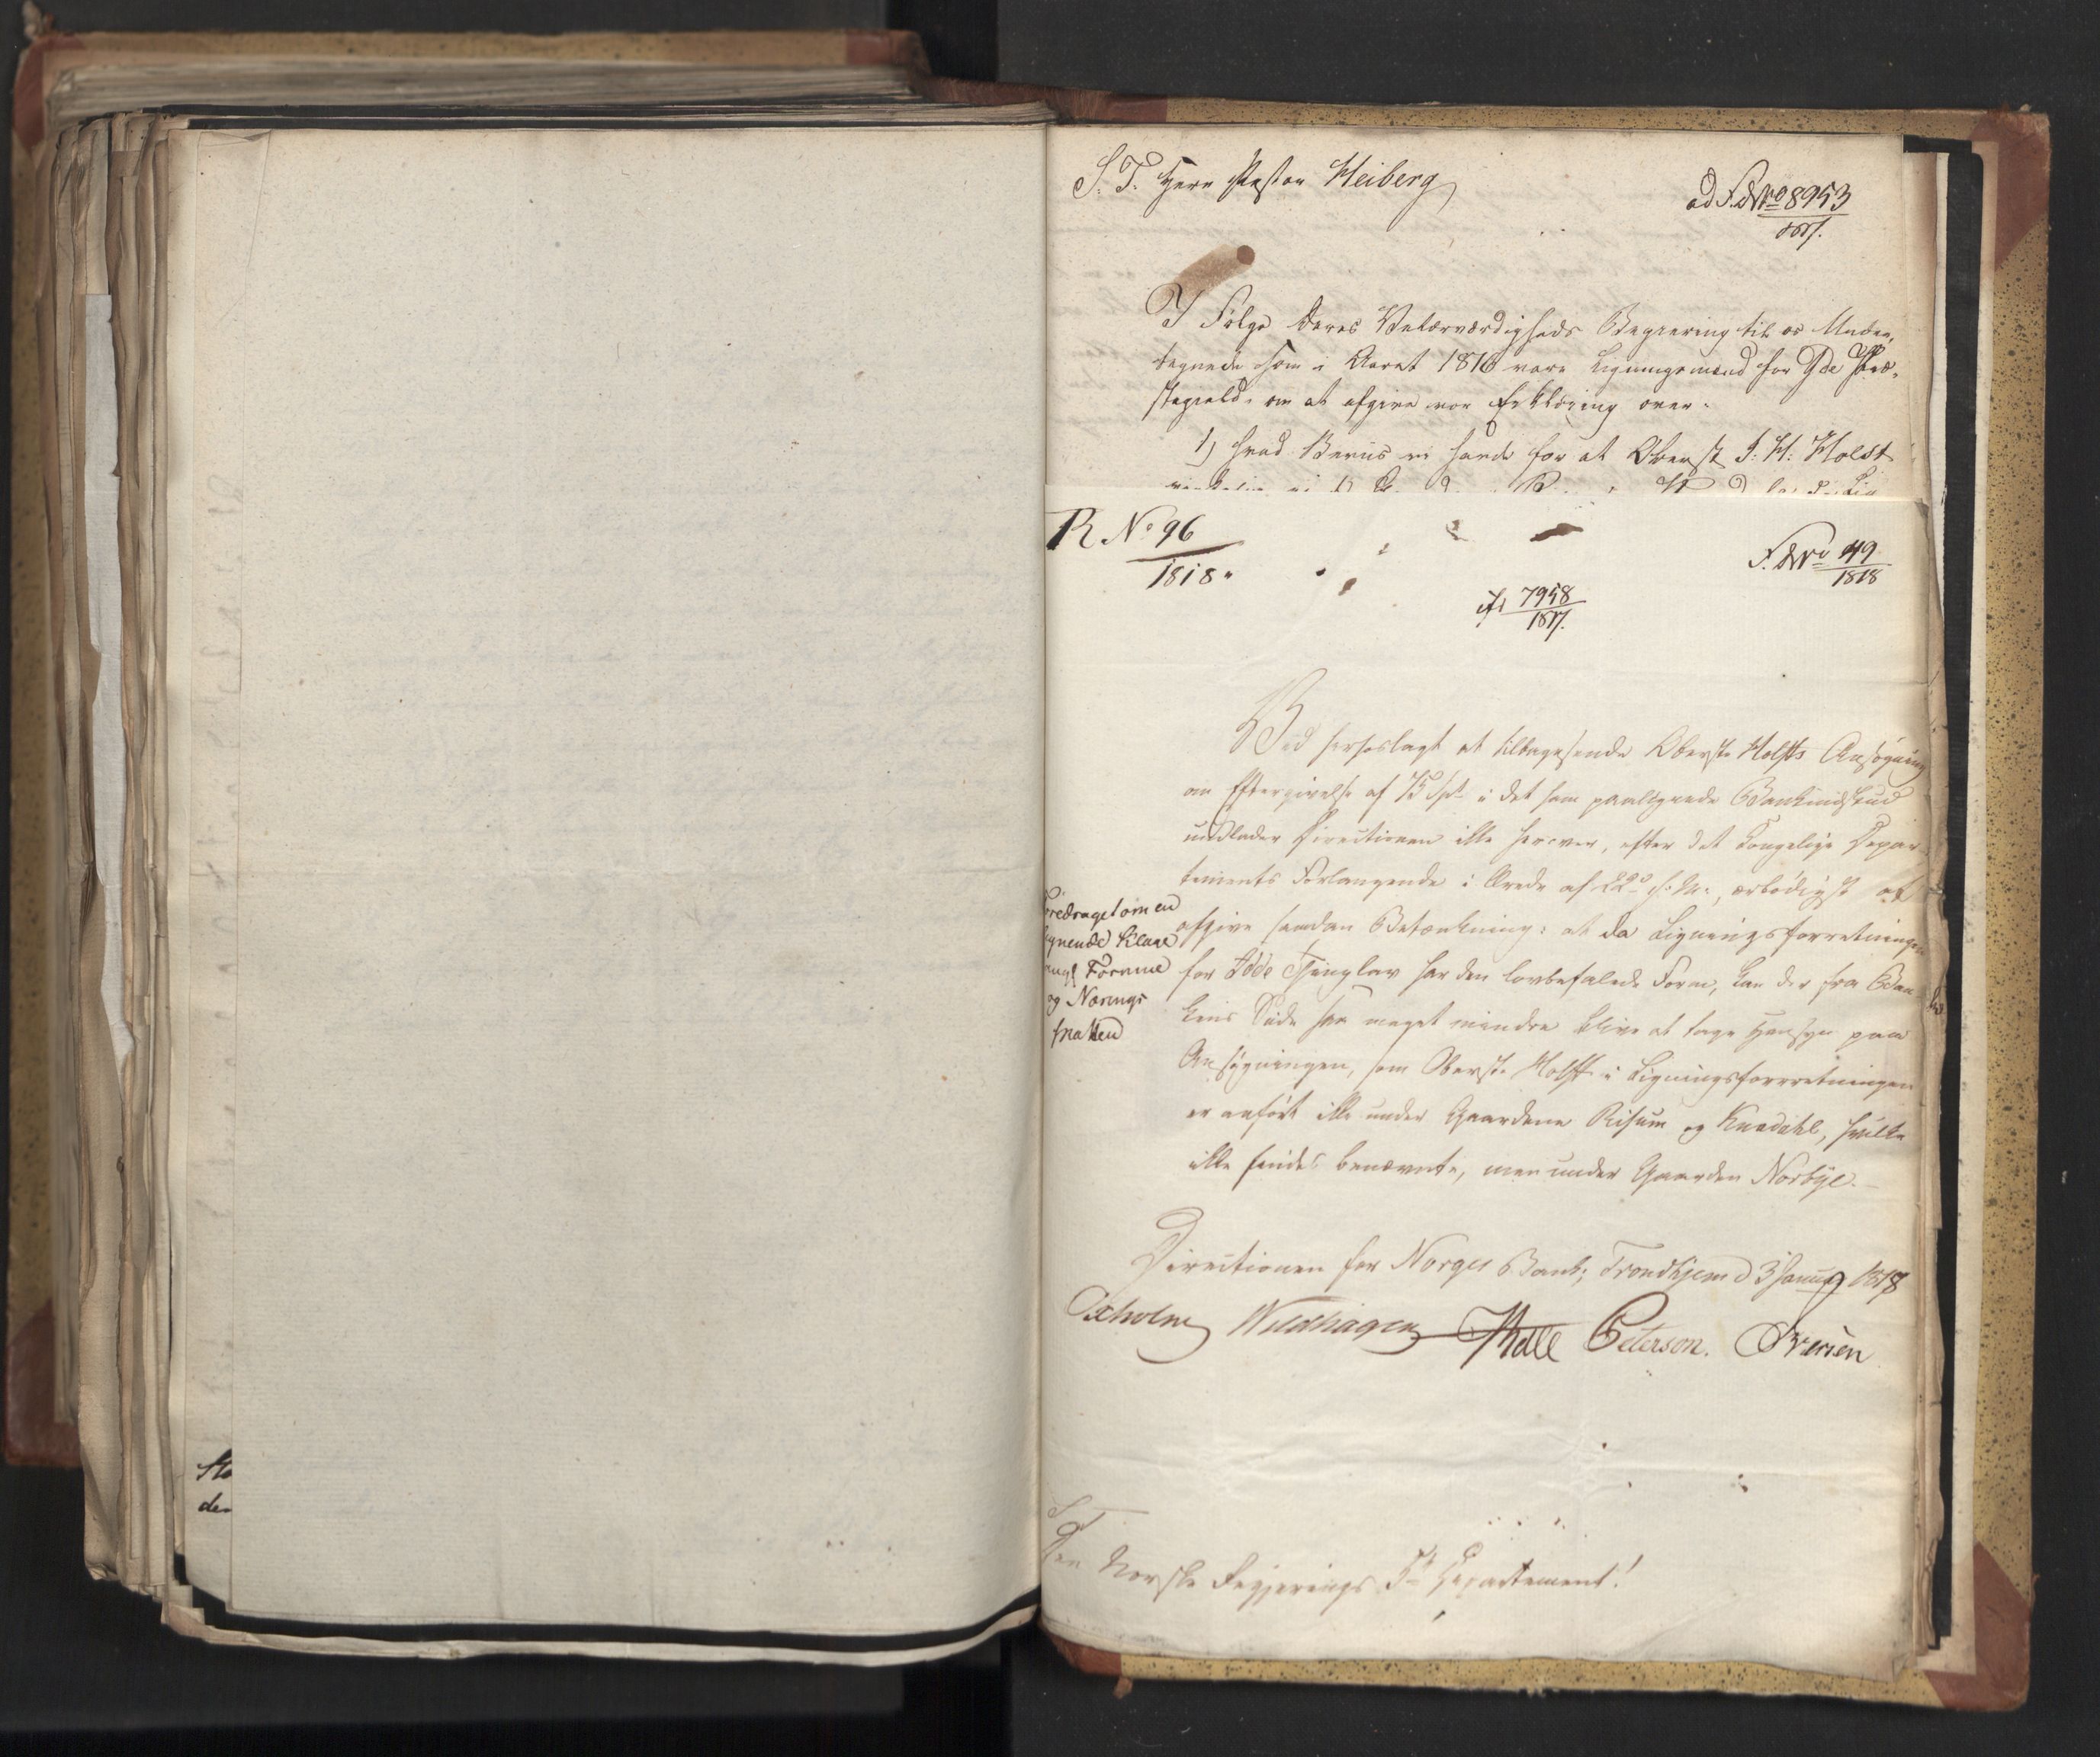 S. T. Herr Pastor Heiberg
ad F. D. No 8953
1817.
I Følge Deres Velærværdigheds Begiering til os Under-
tegnede som i Aaret 1816 vare Ligningsmænd for Ide Præ-
stegield, om at afgive vor Erklæring over:
1) hvad Beviis vi havde for at Oberst J. H. Holst
R No 96
1818.
F. D. No 49
1818
cfr 7958
1817.
Ved hoslagt at tilbagesende Oberst Holsts Ansøgning
om Eftergivelse af 75 Spd i det ham paalignede Bankindskud
undlader Directionen ikke herover, efter det Kongelige Depar-
tements Forlangende i Brev af 22de f. M., ærbødigst at
afgive saadan Betænkning: at da Ligningsforretningen
for Idde Thinglav har den lovbefalede Form, kan der fra Ban-
kens Side saa meget mindre blive at tage Hensyn paa
Ansøgningen, som Oberst Holst i Ligningsforretningen
er anført ikke under Gaardene Risum og Knardahl, hvilke
ikke findes benævnte, men under Gaarden Norbÿe.
foredraget om en
lignende Klage
Formue
og Nærings
skatten
Directionen for Norges Bank, Trondhjem d 3 Januar 1818
Oxholm Wildhagen Møll Peterson. Iversen
S T
Den Norske Regjerings 5te Departement!
Sto
den